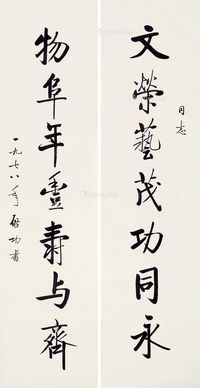 文榮藝茂功同永
同志
物阜年豐壽与齊
一九七八年 啓功書